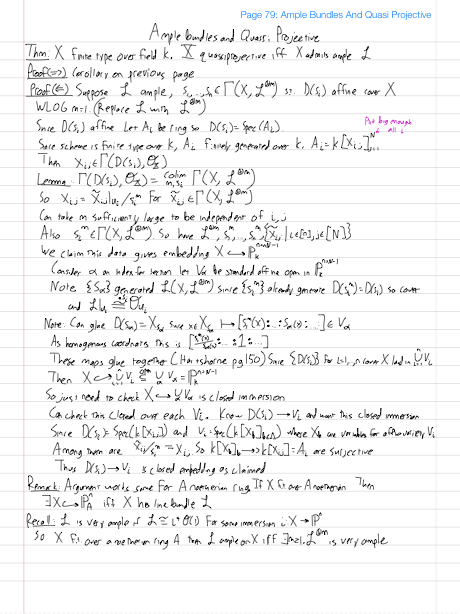 Page 79: Ample Bundles And Quasi Projective
Ample bundles and Quasi; Projective
Thm: X finite type over field k. X quasiprojective iff X admits ample L
Proof(=>) Corollary on previous page
Proof(<=) Suppose L ample, s₁,...,sₙ ∈ Γ(X, L^⊗m) s.t. D(sᵢ) affine cover X
WLOG m=1. (Replace L with L^⊗m)
Put big enough N for all i
Since D(sᵢ) affine Let Aᵢ be ring so D(sᵢ) = Spec(Aᵢ).
Since scheme is finite type over k, Aᵢ finitely generated over k, Aᵢ = k[Xᵢⱼ]ⱼ₌₁ᴺ
Then Xᵢⱼ ∈ Γ(D(sᵢ), Oₓ)
Lemma: Γ(D(sᵢ), Oₓ) = colim Γ(X, L^⊗m)
So Xᵢⱼ = X̃ᵢⱼ|ᵤᵢ / sᵢᵐ for X̃ᵢⱼ ∈ Γ(X, L^⊗m)
Can take m sufficiently large to be independent of i, j
Also sᵢᵐ ∈ Γ(X, L^⊗m). So have L^⊗m, s₁ᵐ, ..., sₙᵐ, {X̃ᵢⱼ | i∈[n], j∈[N]}
We claim this data gives embedding X ↪ P
Consider α an index for section let Vα be standard affine open in P
Note {Sα} generated since {sᵢᵐ} already generate D(sᵢᵐ) = D(sᵢ) so cover
and
Note: Can glue D(Sα) = X_Sα since x ∈ X_Sα ↦ [sᵐ(x): ... :sα(x): ...] ∈ Vα
As homogenous coordinates this is [... :1: ...]
These maps glue together (Hartshorne pg 150) Since {D(sᵢ)} for i=1,...,n cover X land in ∪Vᵢ
Then X ↪ ∪Vᵢ ⊆ ∪ Vα = P
So just need to check X ↪ ∪Vα is closed immersion
Can check this closed over each Vᵢ. Know D(sᵢ) → Vᵢ and want this closed immersion
Since D(sᵢ) = Spec(k[Xᵢⱼ]) and Vᵢ = Spec(k[X_b]) where X_b are variables for affine variety Vᵢ
Among them are X̃ᵢⱼ/sᵢᵐ = Xᵢⱼ. So k[X_b] ↠ k[Xᵢⱼ] = Aᵢ are surjective
Thus D(sᵢ) → Vᵢ is closed embedding as claimed
Remark: Argument works same for A noetherian ring If X f.t. over A noetherian Then
∃ X ↪ Pⁿ_A iff X has line bundle L
Recall: L is very ample if L ≅ i*O(1) for some immersion i: X → Pⁿ
So X f.t. over a noetherian ring A then L ample on X iff ∃m≥1, L^⊗m is very ample